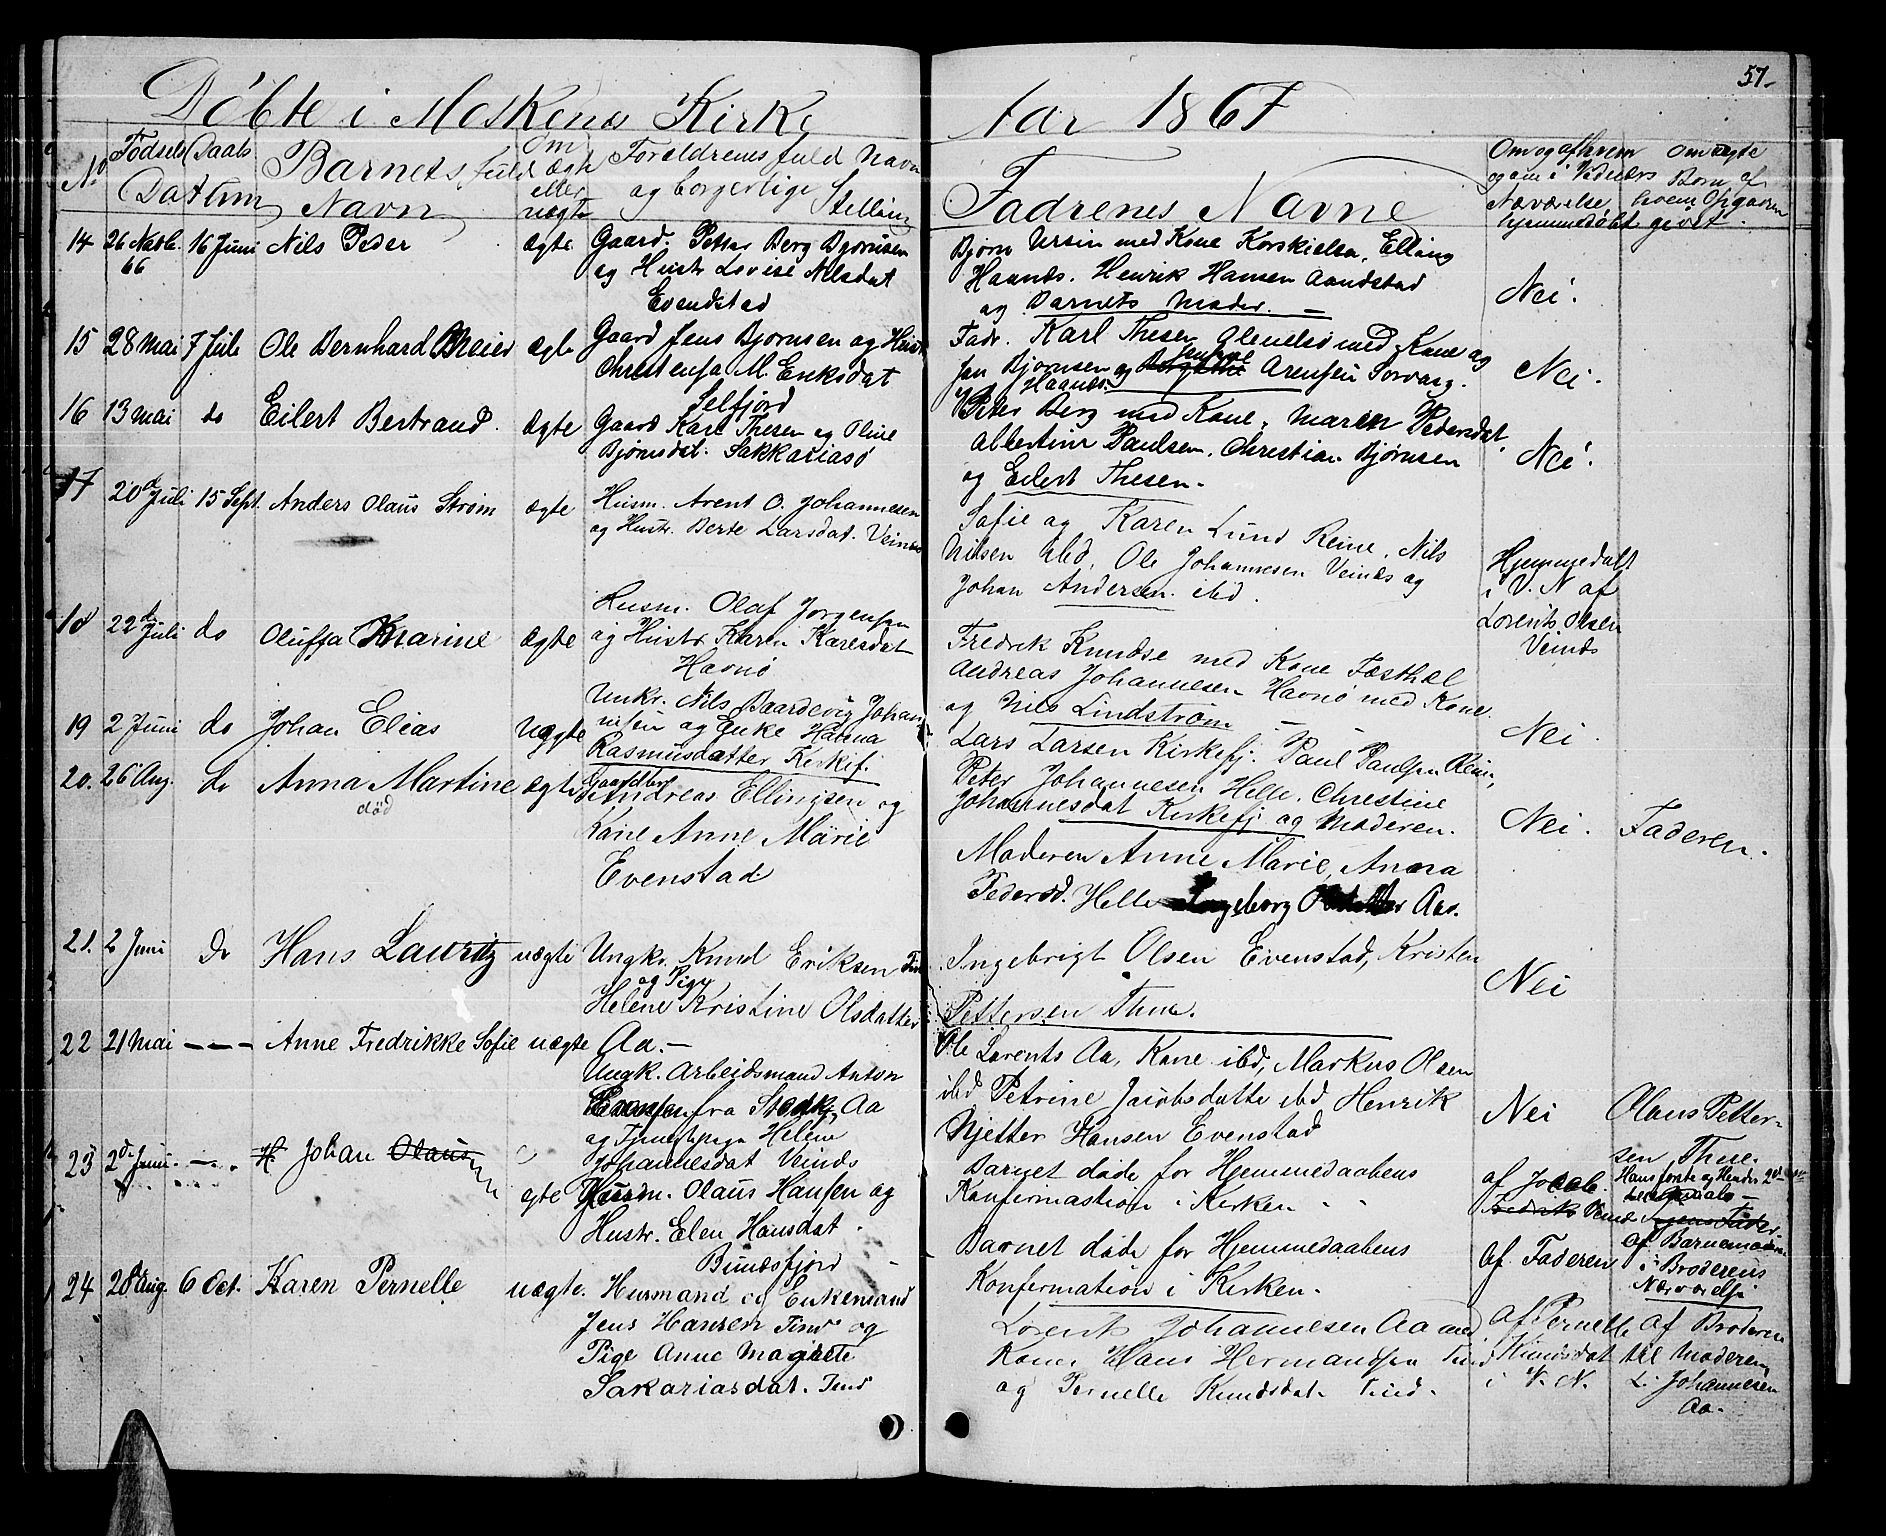 57
Döbte i Moskenes Kirke
Aar 1867
No
Fødsels Daabs
Datum
Barnets fuld
Navn
Om
ægte
eller
uægte
Forældrenes fuld Navn
og borgerlige Stelling
Fadrenes Navne
Om og af hvem
og om i Vidners
Nærværelse
hjemmedøbt
Om uægte
Born af
hvem Opgaven
givet.
14 26 Novb. 66 16 Juni Nils Peder ægte Gaard. Petter Berg Bjørnsen
og Hustr Lovise Nilsdat
Evendstad
Bjørn Ursin med Kone Korskielsn, Elling
Haands. Henrik Hansen Aandstad
og Barnets Moder. —
Nei.
15 28 Mai 7 Juli Ole Bernhard Meier ægte Gaard Jens Bjørnsen og Hustr
Christensa M. Eriksdat
Selfjord
Fadr. Karl Thesen Olenilsø med Kone og
Jan Bjørnsen og Arensen Sørvaag.
Nei.
16 13 Mai do Eilert Bertrand. ægte Gaard Karl Thesen og Oline
Bjørnsdat. Sakkariasø
Peter Berg med Kone, Maren Pedersdat,
Albertine Paulsen, Christian Bjørnsen
og Eilert Thesen.
Nei.
17 20de Juli 15 Sept. Anders Olaus Strøm ægte Husm. Arent O. Johannesen
og Hustr. Berte Larsdat. Veines
Sofie og Karen Lund Reine, Nils
Nilsen ibd, Ole Johannesen Veines og
Johan Andersen ibd.
Hjemmedøbt
i V. N af
Lorents Olsen
Veines
18 22de Juli do Oluffa Marine ægte Husm. Olaf Jørgensen
og Hustr Karen Karlsdat
Havnø
Fredrik Knudse med Kone Festhæl
Andreas Johannesen Havnø med Kone
og Nils Lindstrøm —
Nei.
19 2 Juni do Johan Elias Uægte Unkr. Nils Baardevig Johan
nesen og Enke Hanna
Rasmusdatter Kirkefj.
Lars Larsen Kirkefj. Paul Paulsen Rein,
Peter Johannesen Helle. Christine
Johannesdat Kirkefj og Moderen.
Nei. Faderen.
20. 26 Aug. do Anna Martine ægte
død
Gaardbr
Andreas Ellingsen og
Kone Anne Marie
Evenstad
Moderen Anne Marie, Anna
Pedersd. Helle Ingeborg Aa.
21. 2 Juni do Hans Lauritz uægte Ungkr. Knud Eriksen Tin
og Pige
Helene Kristine Olsdatter
Aa. —
Ingebrigt Olsen Evenstad, Kristen
Pettersen Thne.
Nei
22 21 Mai — — — Anne Fredrikke Sofie uægte
Ungk. Arbeidsmand Anton
fra Aa
og Tjenestpige Helene
Johannesdat Veinds
Ole Lorents Aa, Kone ibd, Markus Olsen
ibd Petrine Jacobsdatte ibd Henrik
Njetter Hansen Evenstad
Nei Olaus Petter-
sen, Thne.
23 2de Juni. — . H. Johan Olaus
ægte Husm. Olaus Hansen og
Hustr. Elen Hansdat
Bundsfjord
Barnet døde for Hjemmedaabens
Konfirmastion i Kirken
af Jacob
Fredrik Veinds
Barnet døde for Hjemmedaabens
Konfermation i Kirken.
af Faderen
af Barnemoderen
i Broderens
Nærværelse
24 28 Aug. 6 Oct. Karen Pernelle uægte. Husmand og Enkemand
Jens Hansen Tind og
Pige Anne Magrete
Sakariasdat. Tind
Lorents Johannesen Aa med
Kone, Hans Hermandsen Tind
og Pernelle Knudsdat Tind.
af Pernelle
Knudsdat
i V. N.
af Broderen
til Moderen
L. Johannesen
Aa.